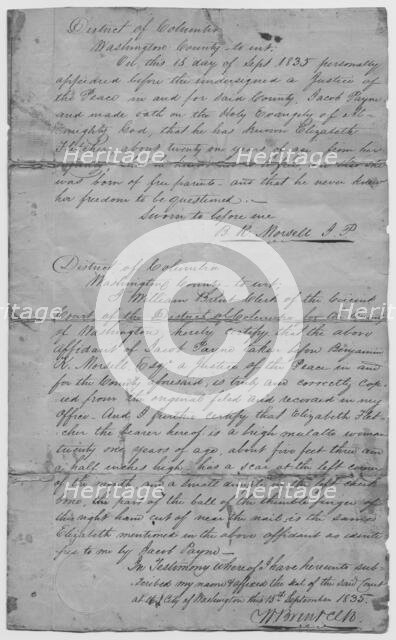 District of Columbia
Washington County to wit.
On this 15 day of Sept 1835 personally
appeared before the undersigned a Justice of
the Peace in and for said County, Jacob Payne
and made oath on the Holy Evangely of al-
mighty God, that he has known Elizabeth
Fletcher about twenty one years of age from her
was born of free parents and that he never knew
her freedom to be questioned.—
Sworn to before me
B. K. Morsell J P
District of Columbia
Washington County to wit;
I William Brent Clerk of the Circuit
Court of the District of Columbia for the County
of Washington, hereby certify that the above
affidavit of Jacob Payne taken before Benjamin
K. Morsell Esqr a Justice of the Peace in and
for the County aforesaid, is truly and correctly cop-
ied from the original filed and recorded in my
Office. And I further certify that Elizabeth Flet-
cher the bearer hereof is a bright mulatto woman
twenty one years of age, about five feet three and
a half inches high, has a scar at the left corner
of the mouth and a small
one, the part of the ball of the finger of
the right hand cut off near the nail, is the same
Elizabeth mentioned in the above affidavit as identi-
fied to me by Jacob Payne—
In Testimony whereof I have hereunto sub-
scribed my name & affixed the seal of the said Court
at the City of Washington this 15th September 1835.
Wm Brent Clk
HERITAGE